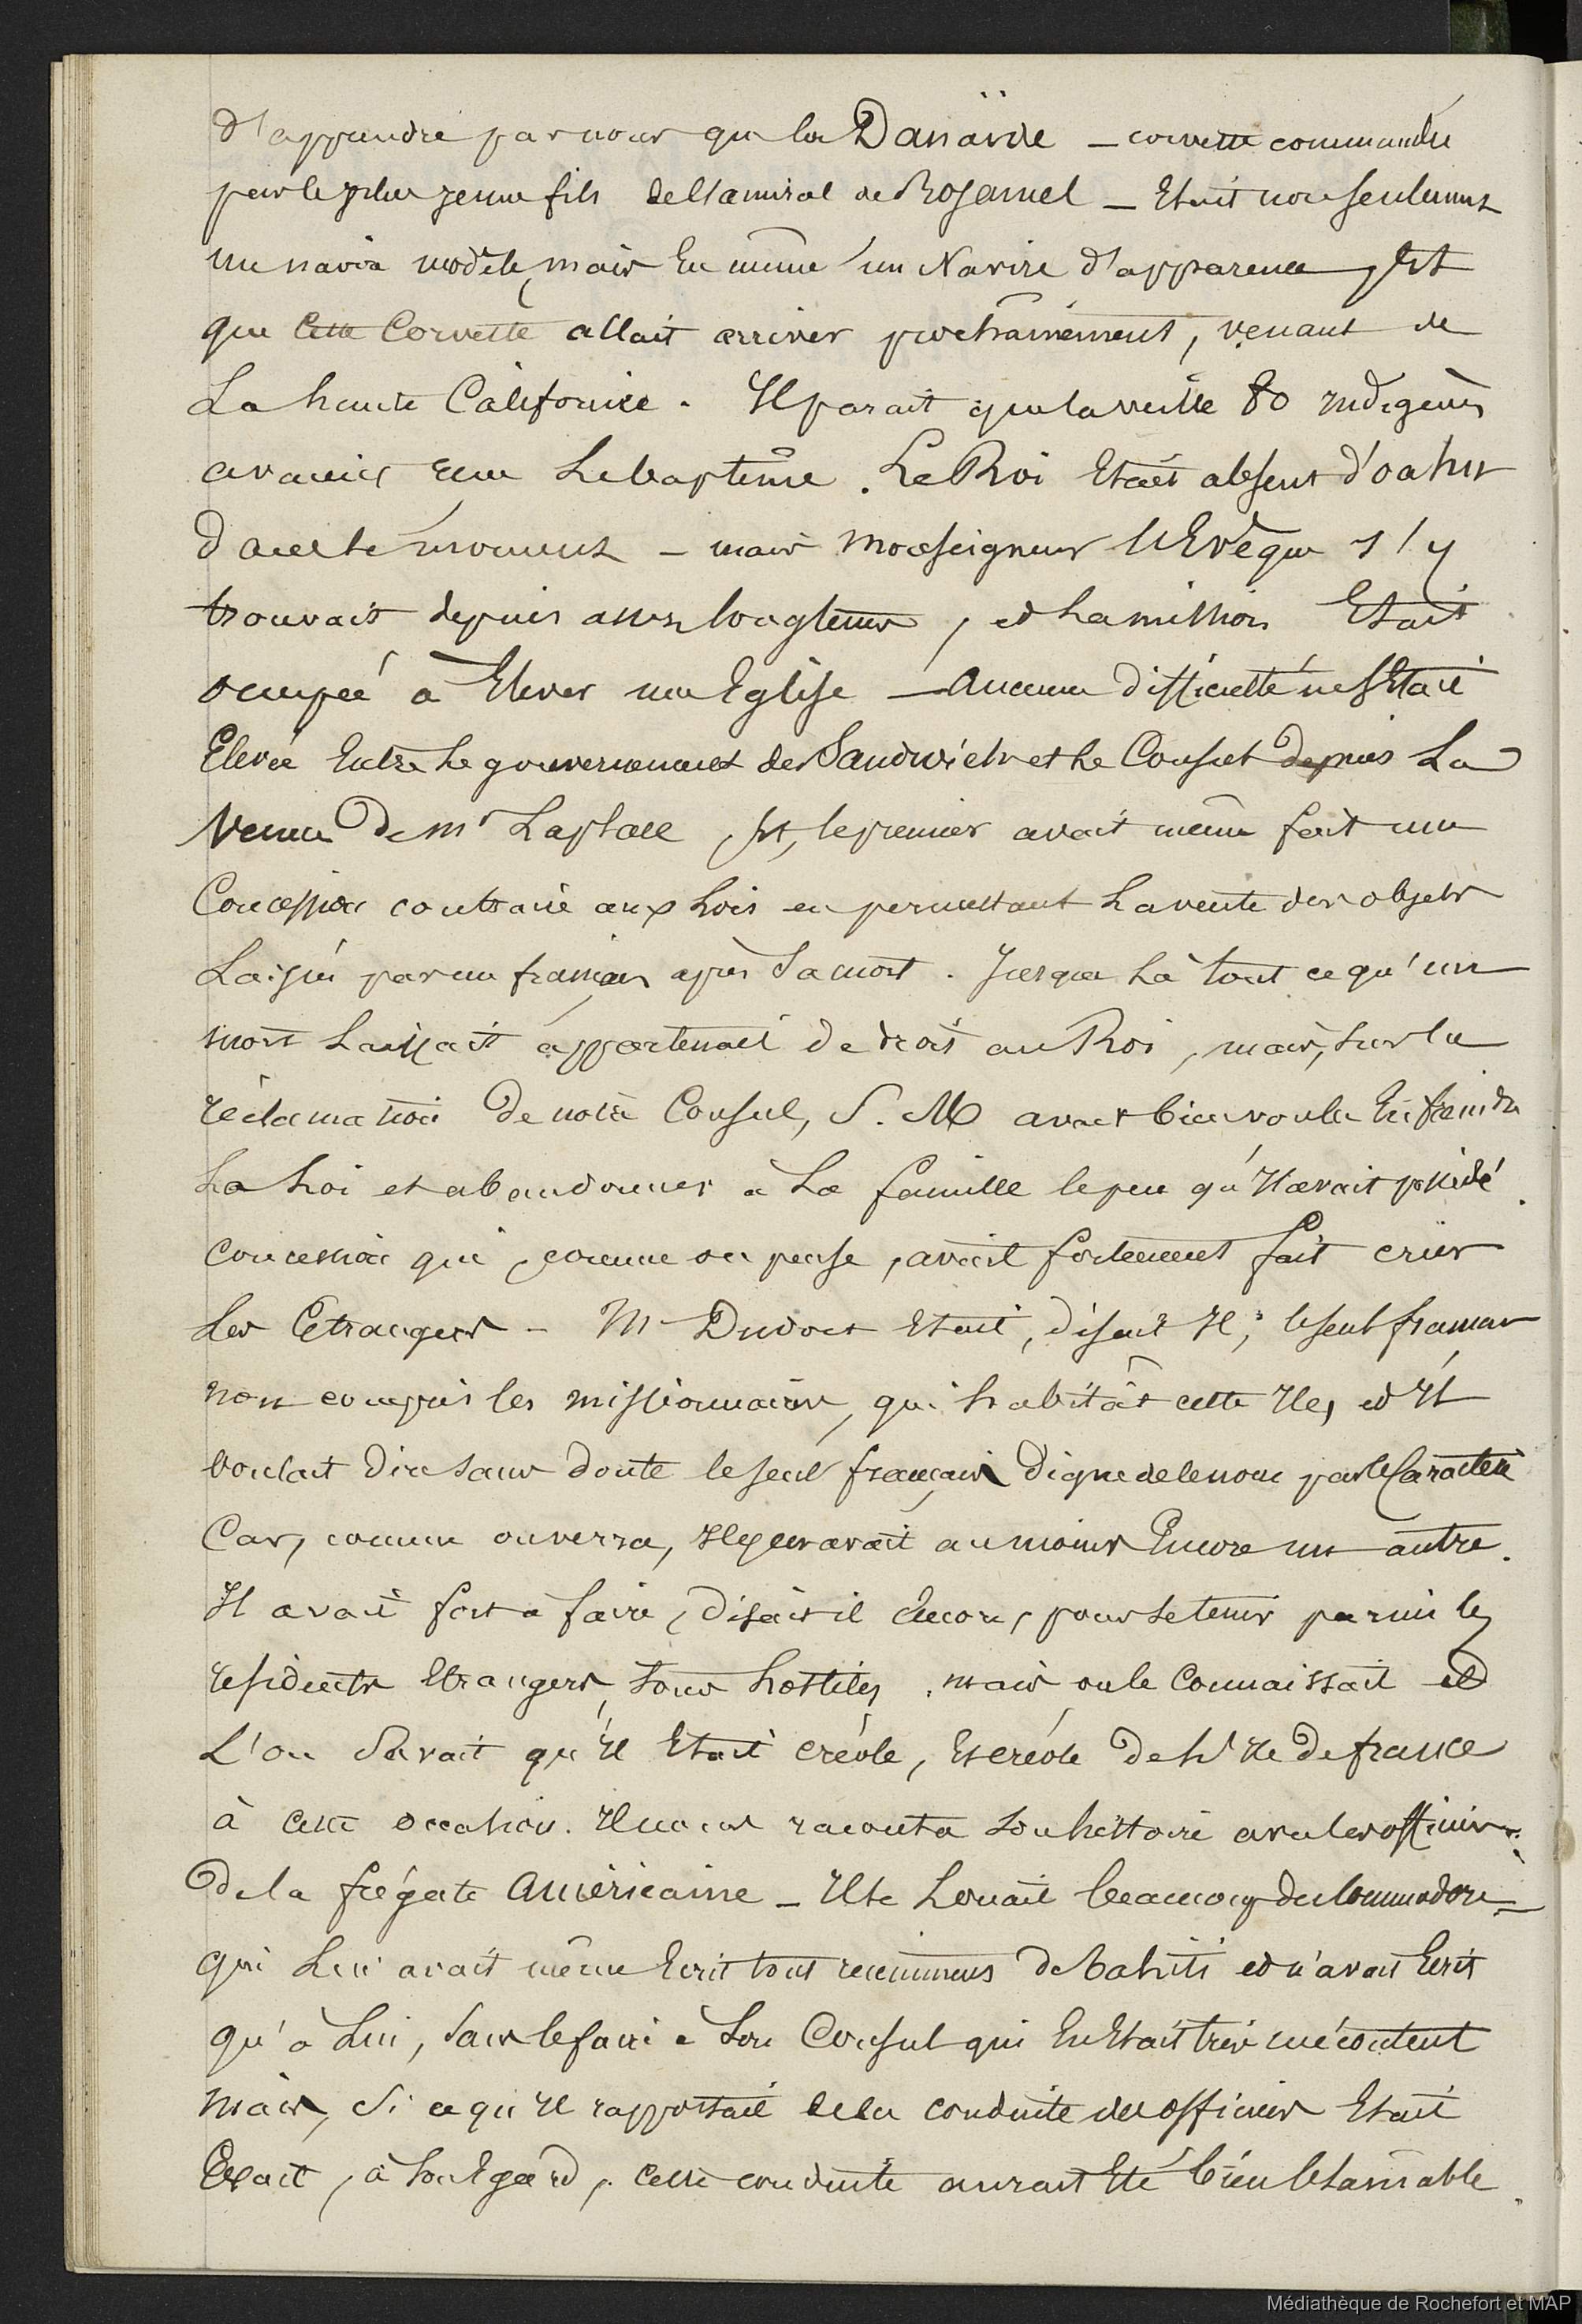 d'apprendre par nous que la Danaïde – corvette commandée
par le plus jeune fils de l'amiral de Rosamel – Etait non seulement
un navire modèle, mais Encore un Navire d'apparence, Et
que cette Corvette allait arriver prochainement, venant de
La haute Californie. Il parait que la veille 80 indigènes
avaient reçu Le baptême. Le Roi Etait absent d'oahu
dans ce moment – mais Monseigneur l'Evêque s'y
trouvait depuis assez longtems, et La mission Etait
occupée à Elever une Eglise – Aucune difficulté ne s'Etait
Elevée Entre Le gouvernement des Sandwich et Le Consul depuis La
venue de Mr Laplace, Et, le premier avait même fait une
Concession contraire aux Lois en permettant La vente des objets
Laissés par un français après sa mort. Jusque Là tout ce qu'un
mort Laissait appartenait de droit au Roi, mais, sur la
réclamation de notre Consul, S. M avait bien voulu Enfreindre
La Loi et abandonner à La famille le peu qu'Il avait possédé.
concession qui, comme on pense, avait fortement fait crier
Les Etrangers – Mr Dudoit Etait, disait Il, le seul français
non compris les missionnaires, qui habitât cette Ile, et Il
voulait dire sans doute le seul français digne de le nom par le Caractère
Car, comme on verra, Il y en avait au moins Encore un autre.
Il avait fort à faire, disait il Encore, pour se tenir parmi les
résidents Etrangers, tous hostiles, mais on le Connaissait et
L'on Savait qu'Il Etait créole, Et créole de L'Ile de france
à cette occasion. Il nous raconta son histoire avec les officiers
de la frégate Américaine – Il se Louait beaucoup du Commodore
qui Lui avait même Ecrit tout recemment de tahiti et n'avait Ecrit
qu'à Lui, sans le faire à Son Consul qui En Etait très mécontent
mais, Si ce qu'Il rapportait de la conduite des officiers Etait
Exact, à Son Egard, cette conduite aurait Eté bien blamable.
Médiathèque de Rochefort et MAP